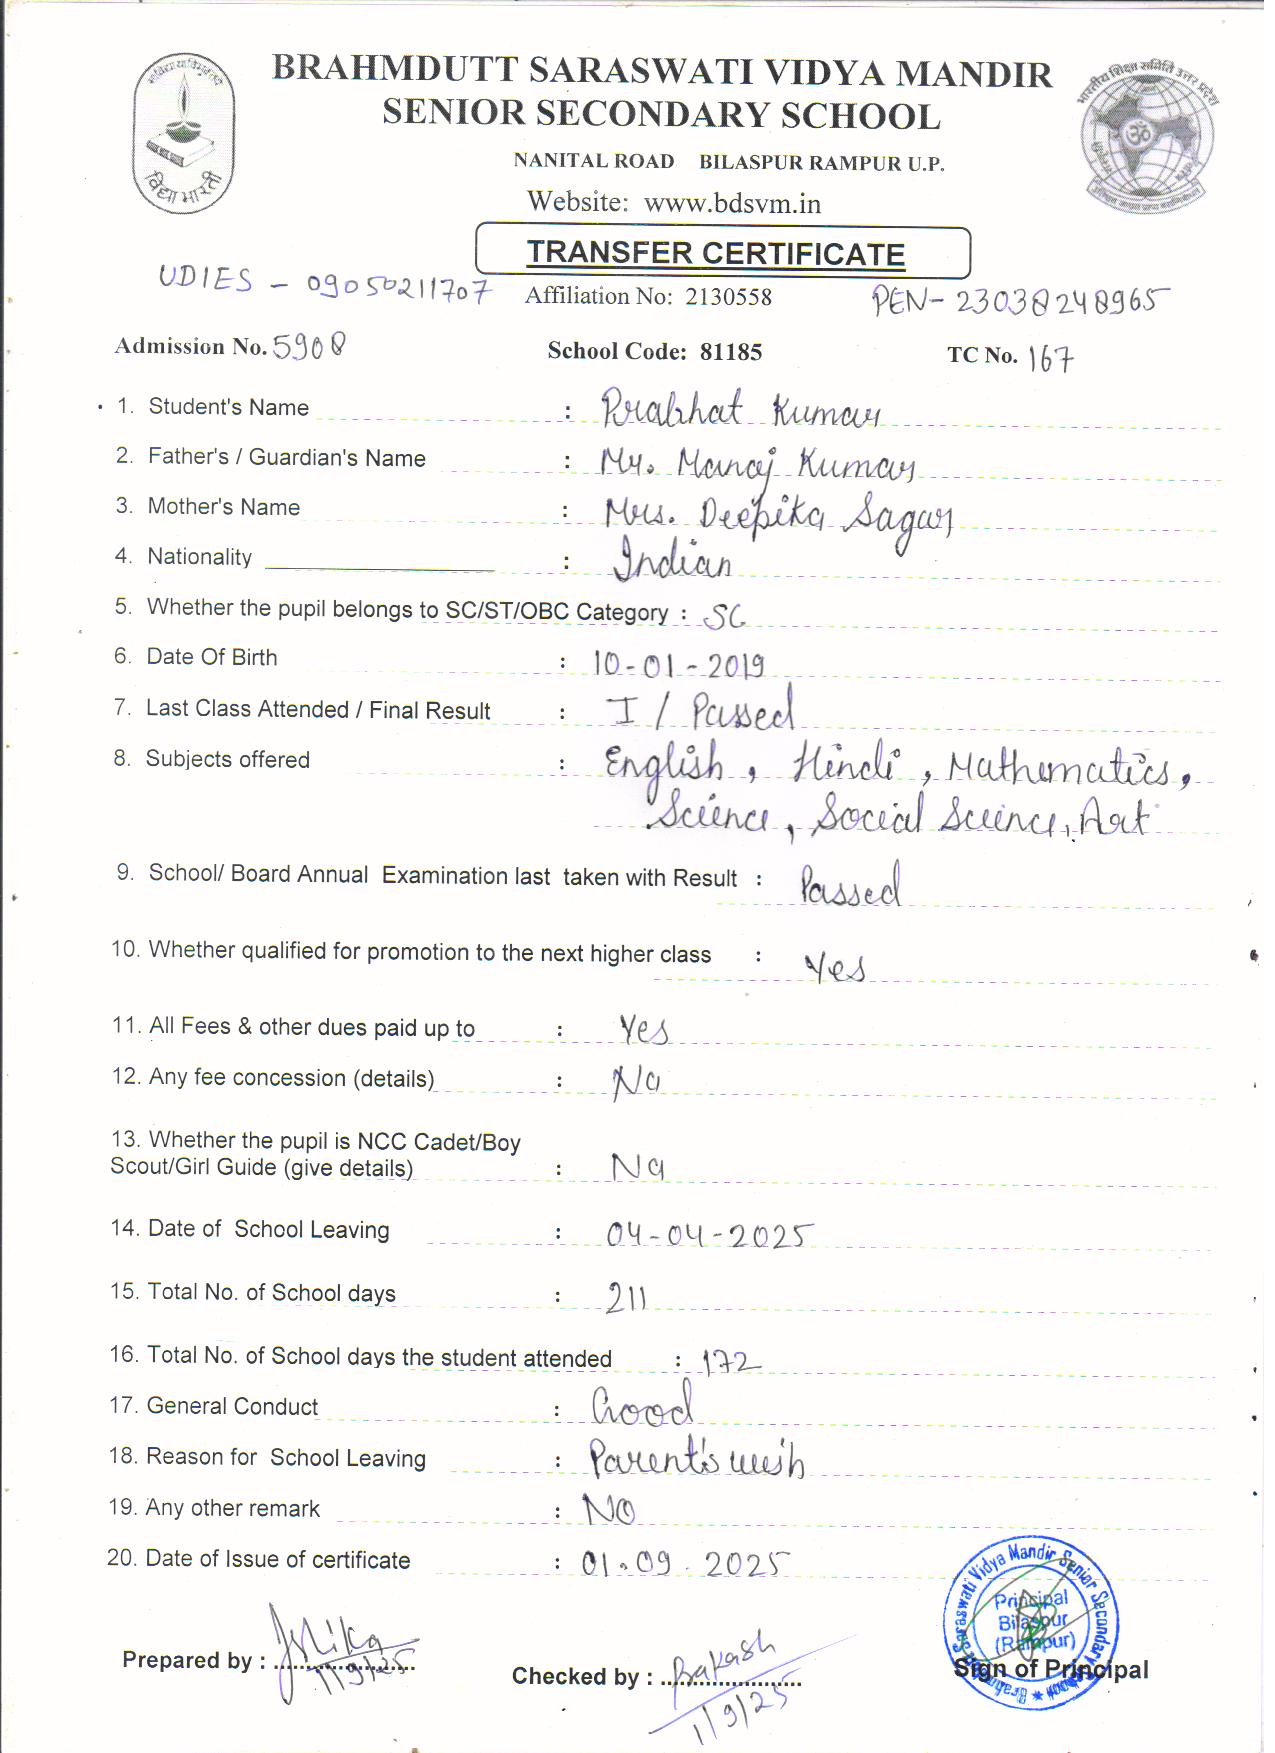 BRAHMDUTT SARASWATI VIDYA MANDIR
SENIOR SECONDARY SCHOOL
विद्या भारती
NANITAL ROAD BILASPUR RAMPUR U.P.
Website: www.bdsvm.in
TRANSFER CERTIFICATE
UDIES - 09050211707
Affiliation No: 2130558
PEN- 23038248965
Admission No. 5908 School Code: 81185 TC No. 167
1. Student's Name : Prabhat Kumar
2. Father's / Guardian's Name : Mr. Manoj Kumar
3. Mother's Name : Mrs. Deepika Sagar
4. Nationality : Indian
5. Whether the pupil belongs to SC/ST/OBC Category : SC
6. Date Of Birth : 10-01-2019
7. Last Class Attended / Final Result : I / Passed
8. Subjects offered : English, Hindi, Mathematics,
Science, Social Science, Art
9. School/ Board Annual Examination last taken with Result : Passed
10. Whether qualified for promotion to the next higher class : Yes
11. All Fees & other dues paid up to : Yes
12. Any fee concession (details) : No
13. Whether the pupil is NCC Cadet/Boy
Scout/Girl Guide (give details) : No
14. Date of School Leaving : 04-04-2025
15. Total No. of School days : 211
16. Total No. of School days the student attended : 172
17. General Conduct : Good
18. Reason for School Leaving : Parent's wish
19. Any other remark : NO
20. Date of Issue of certificate : 01.09.2025
Principal
Bilaspur
(Rampur)
Prepared by : 1/9/25
Checked by : 1/9/25
Sign of Principal